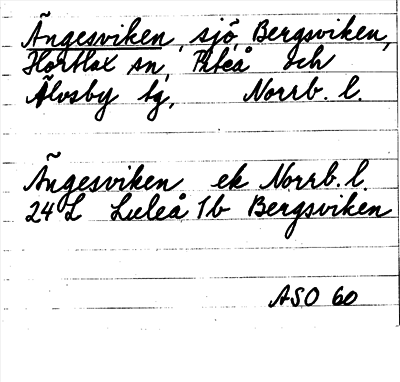 Ängesviken, sjö, Bergsviken,
Hortlax sn, Piteå och
Älvsby tg, Norrb. l.
Ängesviken ek Norrb. l.
24 L Luleå 1b Bergsviken
ASO 60